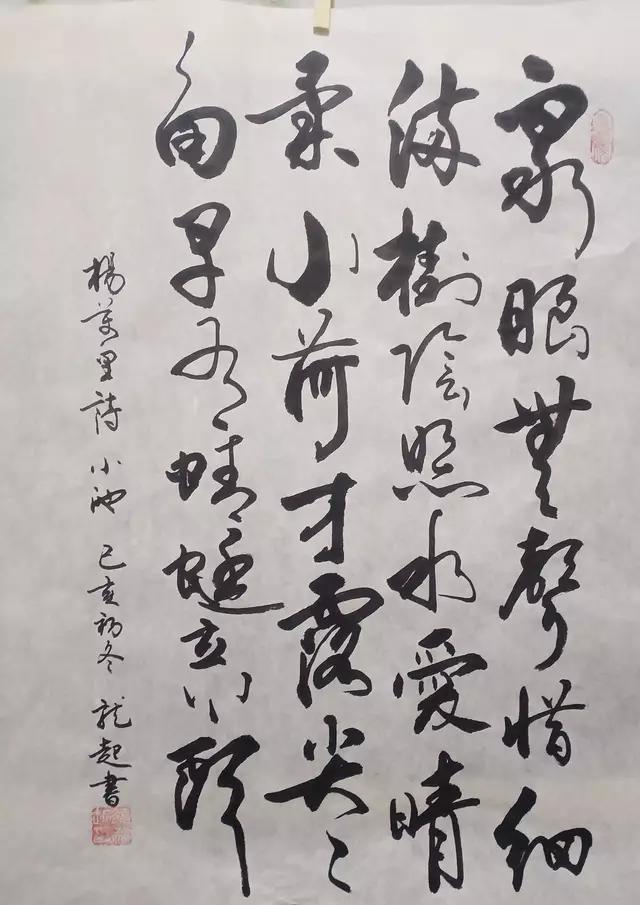 泉眼無聲惜細
流樹陰照水愛晴
柔小荷才露尖〻
角早有蜻蜓立上頭
楊萬里詩 小池 己亥初冬 龍起書